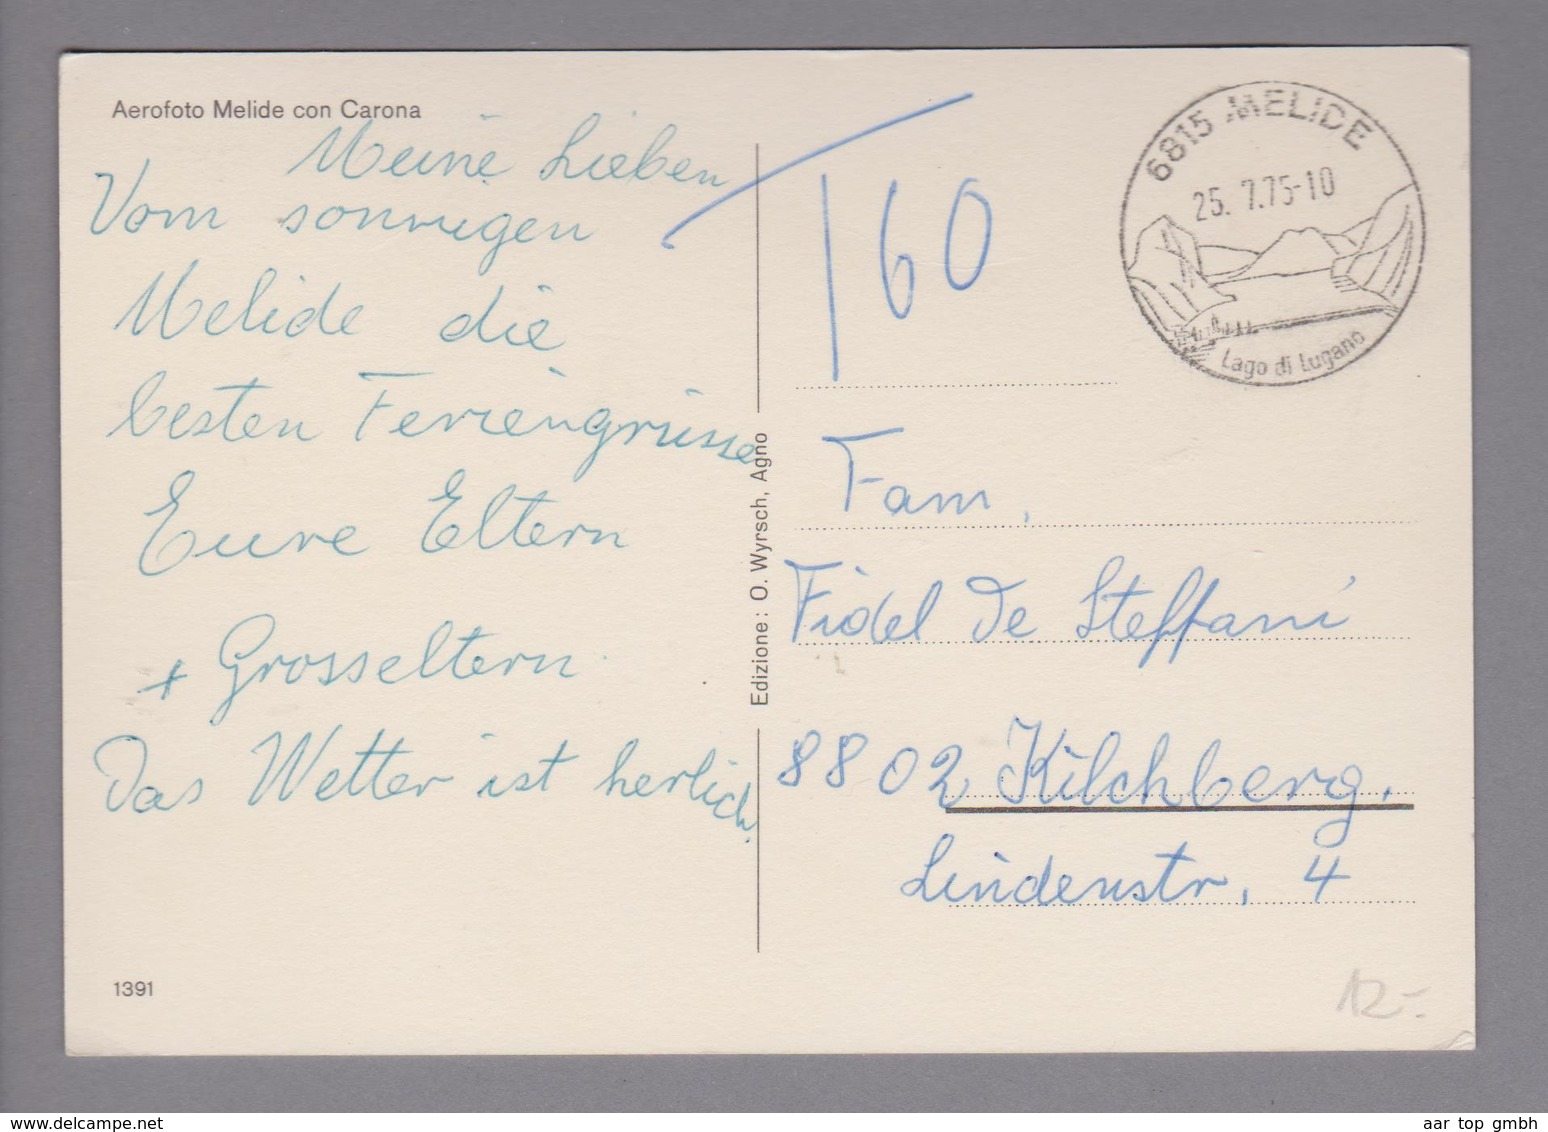 Aerofoto Melide con Carona
Meine Lieben
Vom sonnigen
Melide die
besten Feriengrüsse
Eure Eltern
+ Grosseltern.
Das Wetter ist herlich.
1391
Edizione: O. Wyrsch, Agno
T 60
6815 MELIDE
25. 7.75-10
Lago di Lugano
Fam.
Fidel De Steffani
8802 Kilchberg.
Lindenstr. 4
12.-
www.delcampe.net
aar top gmbh